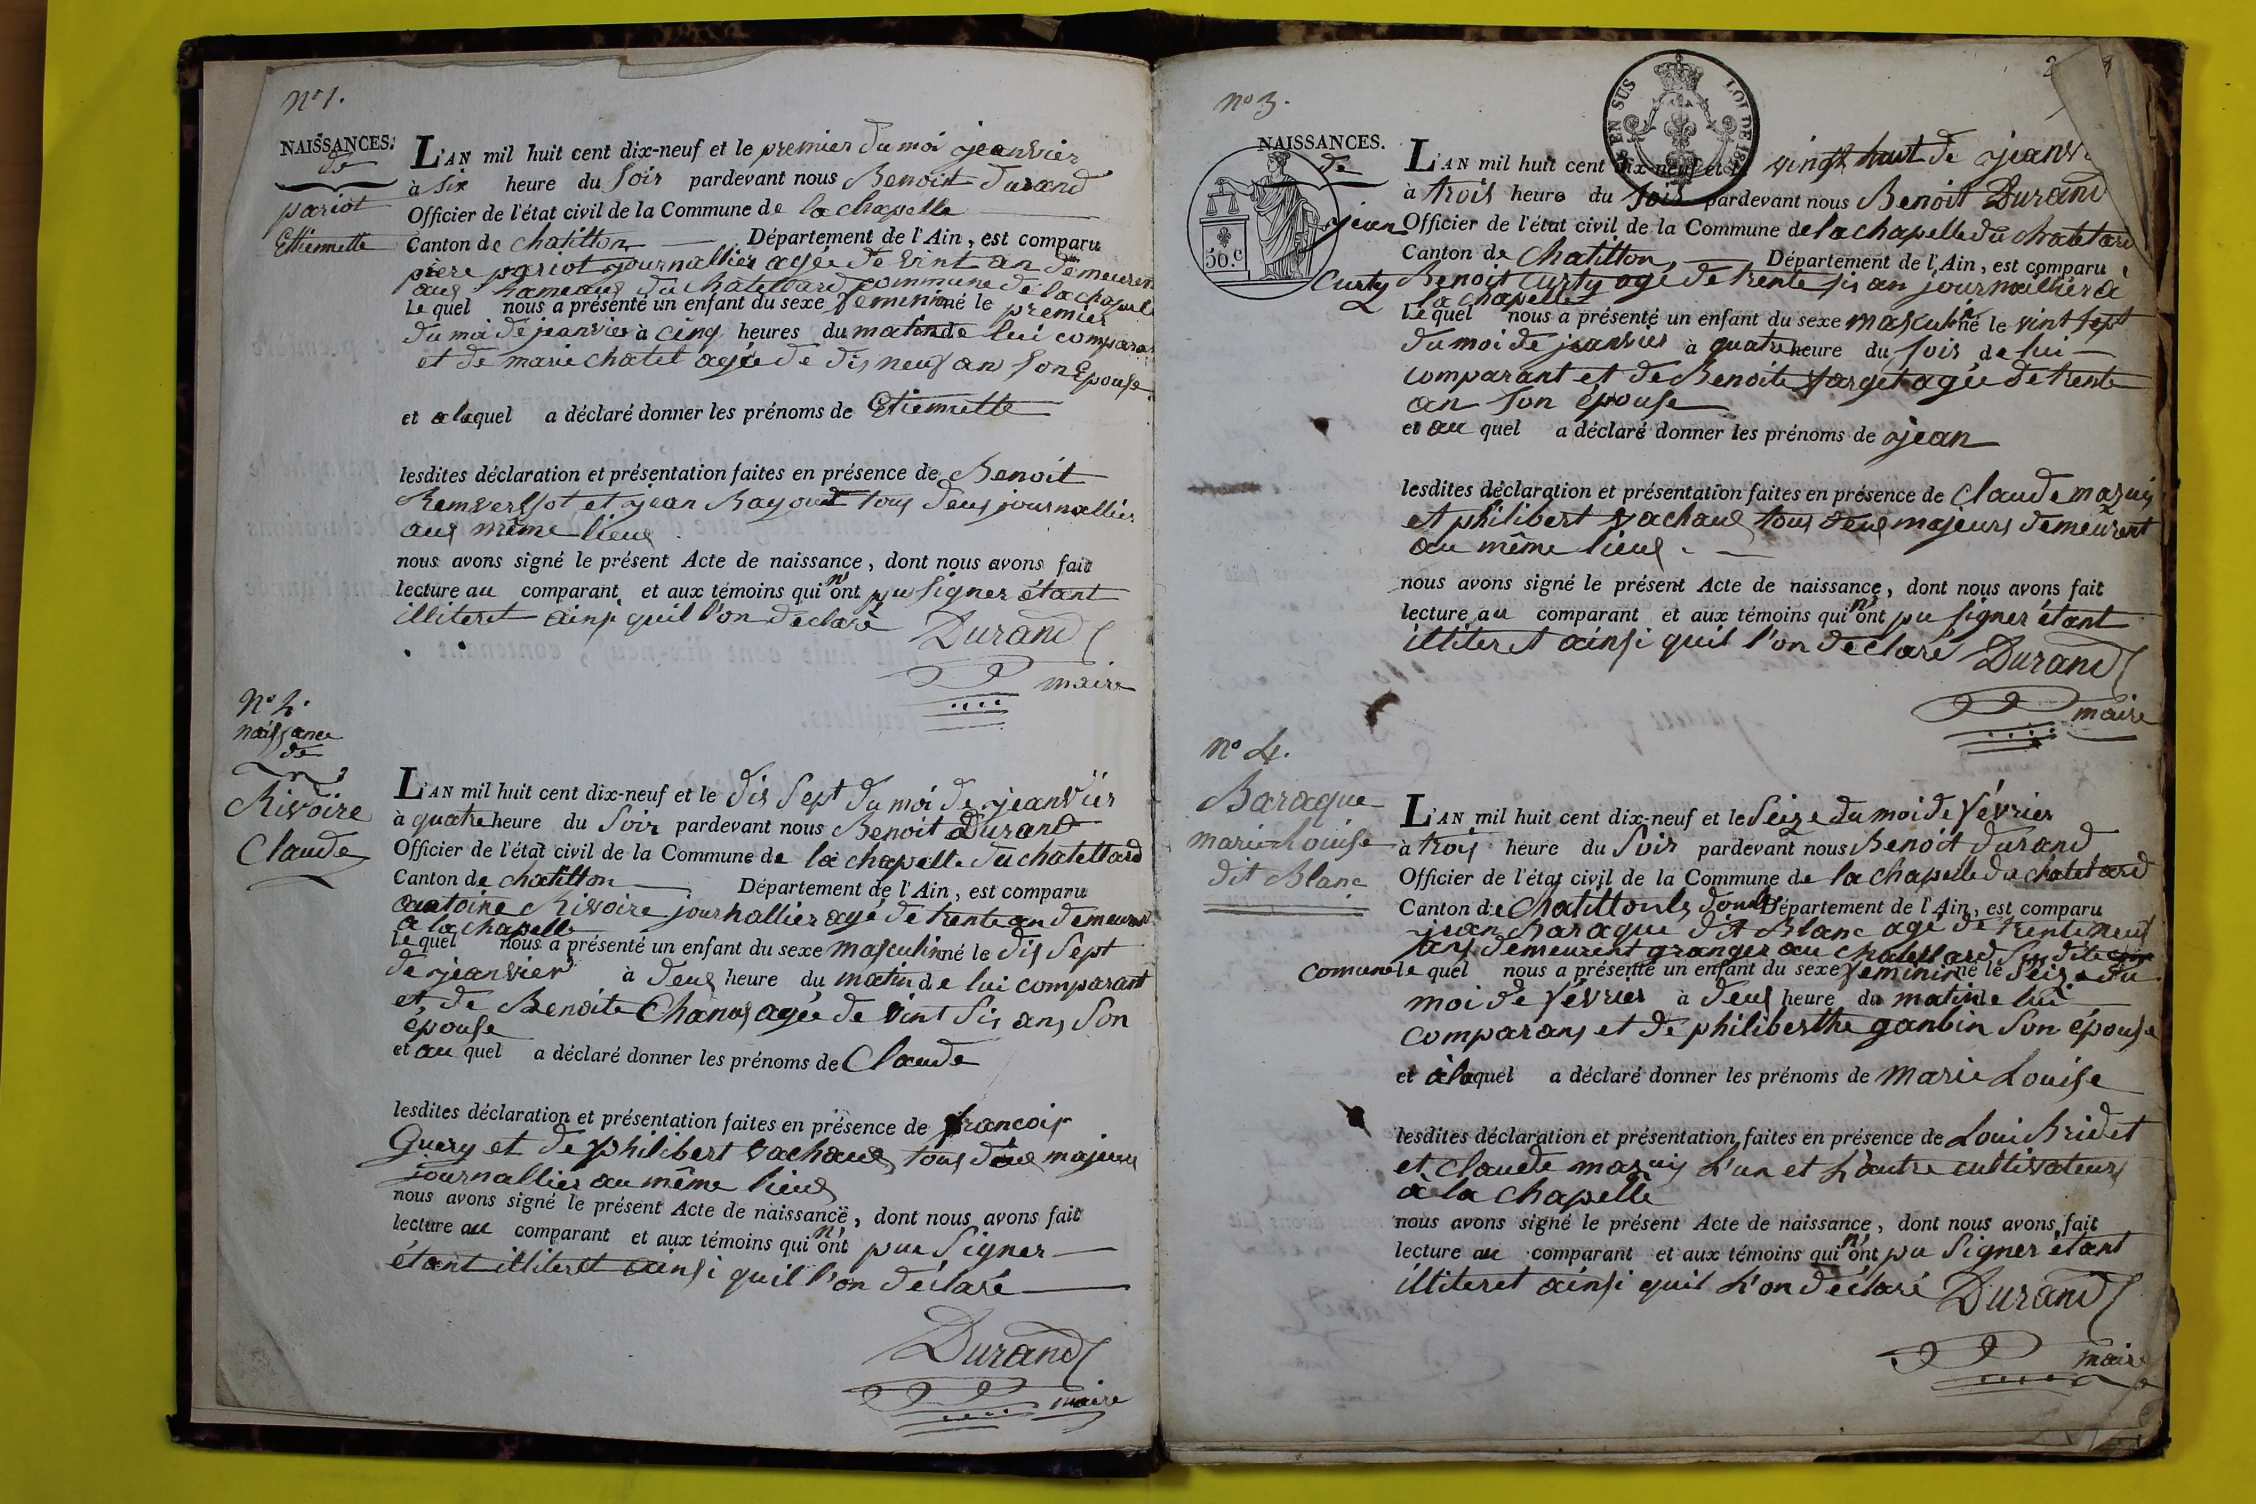 N° 1.
NAISSANCES.
de
pariot
Etiennette
L'AN mil huit cent dix-neuf et le premier du moi jeanvier
à six heure du soir pardevant nous Benoit Durand
Officier de l'état civil de la Commune de la chapelle
Canton de chatillon Département de l'Ain, est comparu
piere pariot journallier agée de vint an demeurent
aux hameaux du chatellard commune de la chapelle
Le quel nous a présenté un enfant du sexe feminin né le premier
du moi de jeanvier à cinq heures du matin de lui comparant
et de marie chatel agée de dis neuf an son Epouse
et a laquel a déclaré donner les prénoms de Etiennette
lesdites déclaration et présentation faites en présence de Benoit
Remverssot et jean Rayout tous deux journallier
aux même lieux
nous avons signé le présent Acte de naissance, dont nous avons fait
lecture au comparant et aux témoins qui n'ont pu signer étant
illiteret ainsi quil l'on declaré Durand
maire
N° 2.
naissance
de
Rivoire
Claude
L'AN mil huit cent dix-neuf et le dis sept du moi de jeanvier
à quatre heure du soir pardevant nous Benoit Durand
Officier de l'état civil de la Commune de la chapelle du chatellard
Canton de chatillon Département de l'Ain, est comparu
antoine Rivoire journallier agé de trente an demeurant
a la chapelle
le quel nous a présenté un enfant du sexe masculin né le dis sept
de jeanvier à deux heure du matin de lui comparant
et de Benoite Chanas agée de vint sis ans son
épouse
et au quel a déclaré donner les prénoms de Claude
lesdites déclaration et présentation faites en présence de francois
Guery et de philibert vachaux tous deux majeurs
journallier au même lieux
nous avons signé le présent Acte de naissance, dont nous avons fait
lecture au comparant et aux témoins qui n'ont pue signer
étant illiteret ainsi quil l'on déclaré
Durand
maire
N° 3.
EN SUS LOI DE
NAISSANCES.
de
jean
Curty
50.c
L'AN mil huit cent dix-neuf et le vingt huit de jeanvier
à trois heure du soir pardevant nous Benoit Durand
Officier de l'état civil de la Commune de la chapelle du chatelard
Canton de Chatillon Département de l'Ain, est comparu
Benoit Curty agé de trente sis an journaillier a
la chapelle
Le quel nous a présenté un enfant du sexe masculin né le vint sept
du moi de jeanvier à quatre heure du soir de lui
comparant et de Benoite farget agée de trente
an son épouse
et au quel a déclaré donner les prénoms de jean
lesdites déclaration et présentation faites en présence de Claude mazuis
et philibert vachaux tous deux majeurs demeurent
au même lieux.
nous avons signé le présent Acte de naissance, dont nous avons fait
lecture au comparant et aux témoins qui n'ont pu signer étant
illiteret ainsi quil l'on declaré Durand
maire
N° 4.
Baraque
marie Louise
dit Blanc
L'AN mil huit cent dix-neuf et le Seize du moi de février
à trois heure du soir pardevant nous Benoit Durand
Officier de l'état civil de la Commune de la chapelle du chatelard
Canton de Chatillon les Département de l'Ain, est comparu
jean Baraque dit Blanc agé de trente neuf
ans demeurent granger au chatellard sus dite
comune le quel nous a présenté un enfant du sexe feminin né le seize du
moi de février à deux heure du matin de lui
comparans et de philiberthe ganbin son épouse
et à laquel a déclaré donner les prénoms de marie Louise
lesdites déclaration et présentation faites en présence de Loui Bridet
et Claude mazuis L'un et L'autre cultivateurs
à la chapelle
nous avons signé le présent Acte de naissance, dont nous avons fait
lecture au comparant et aux témoins qui n'ont pu signer étant
illiteret ainsi quil L'on déclaré Durand
maire